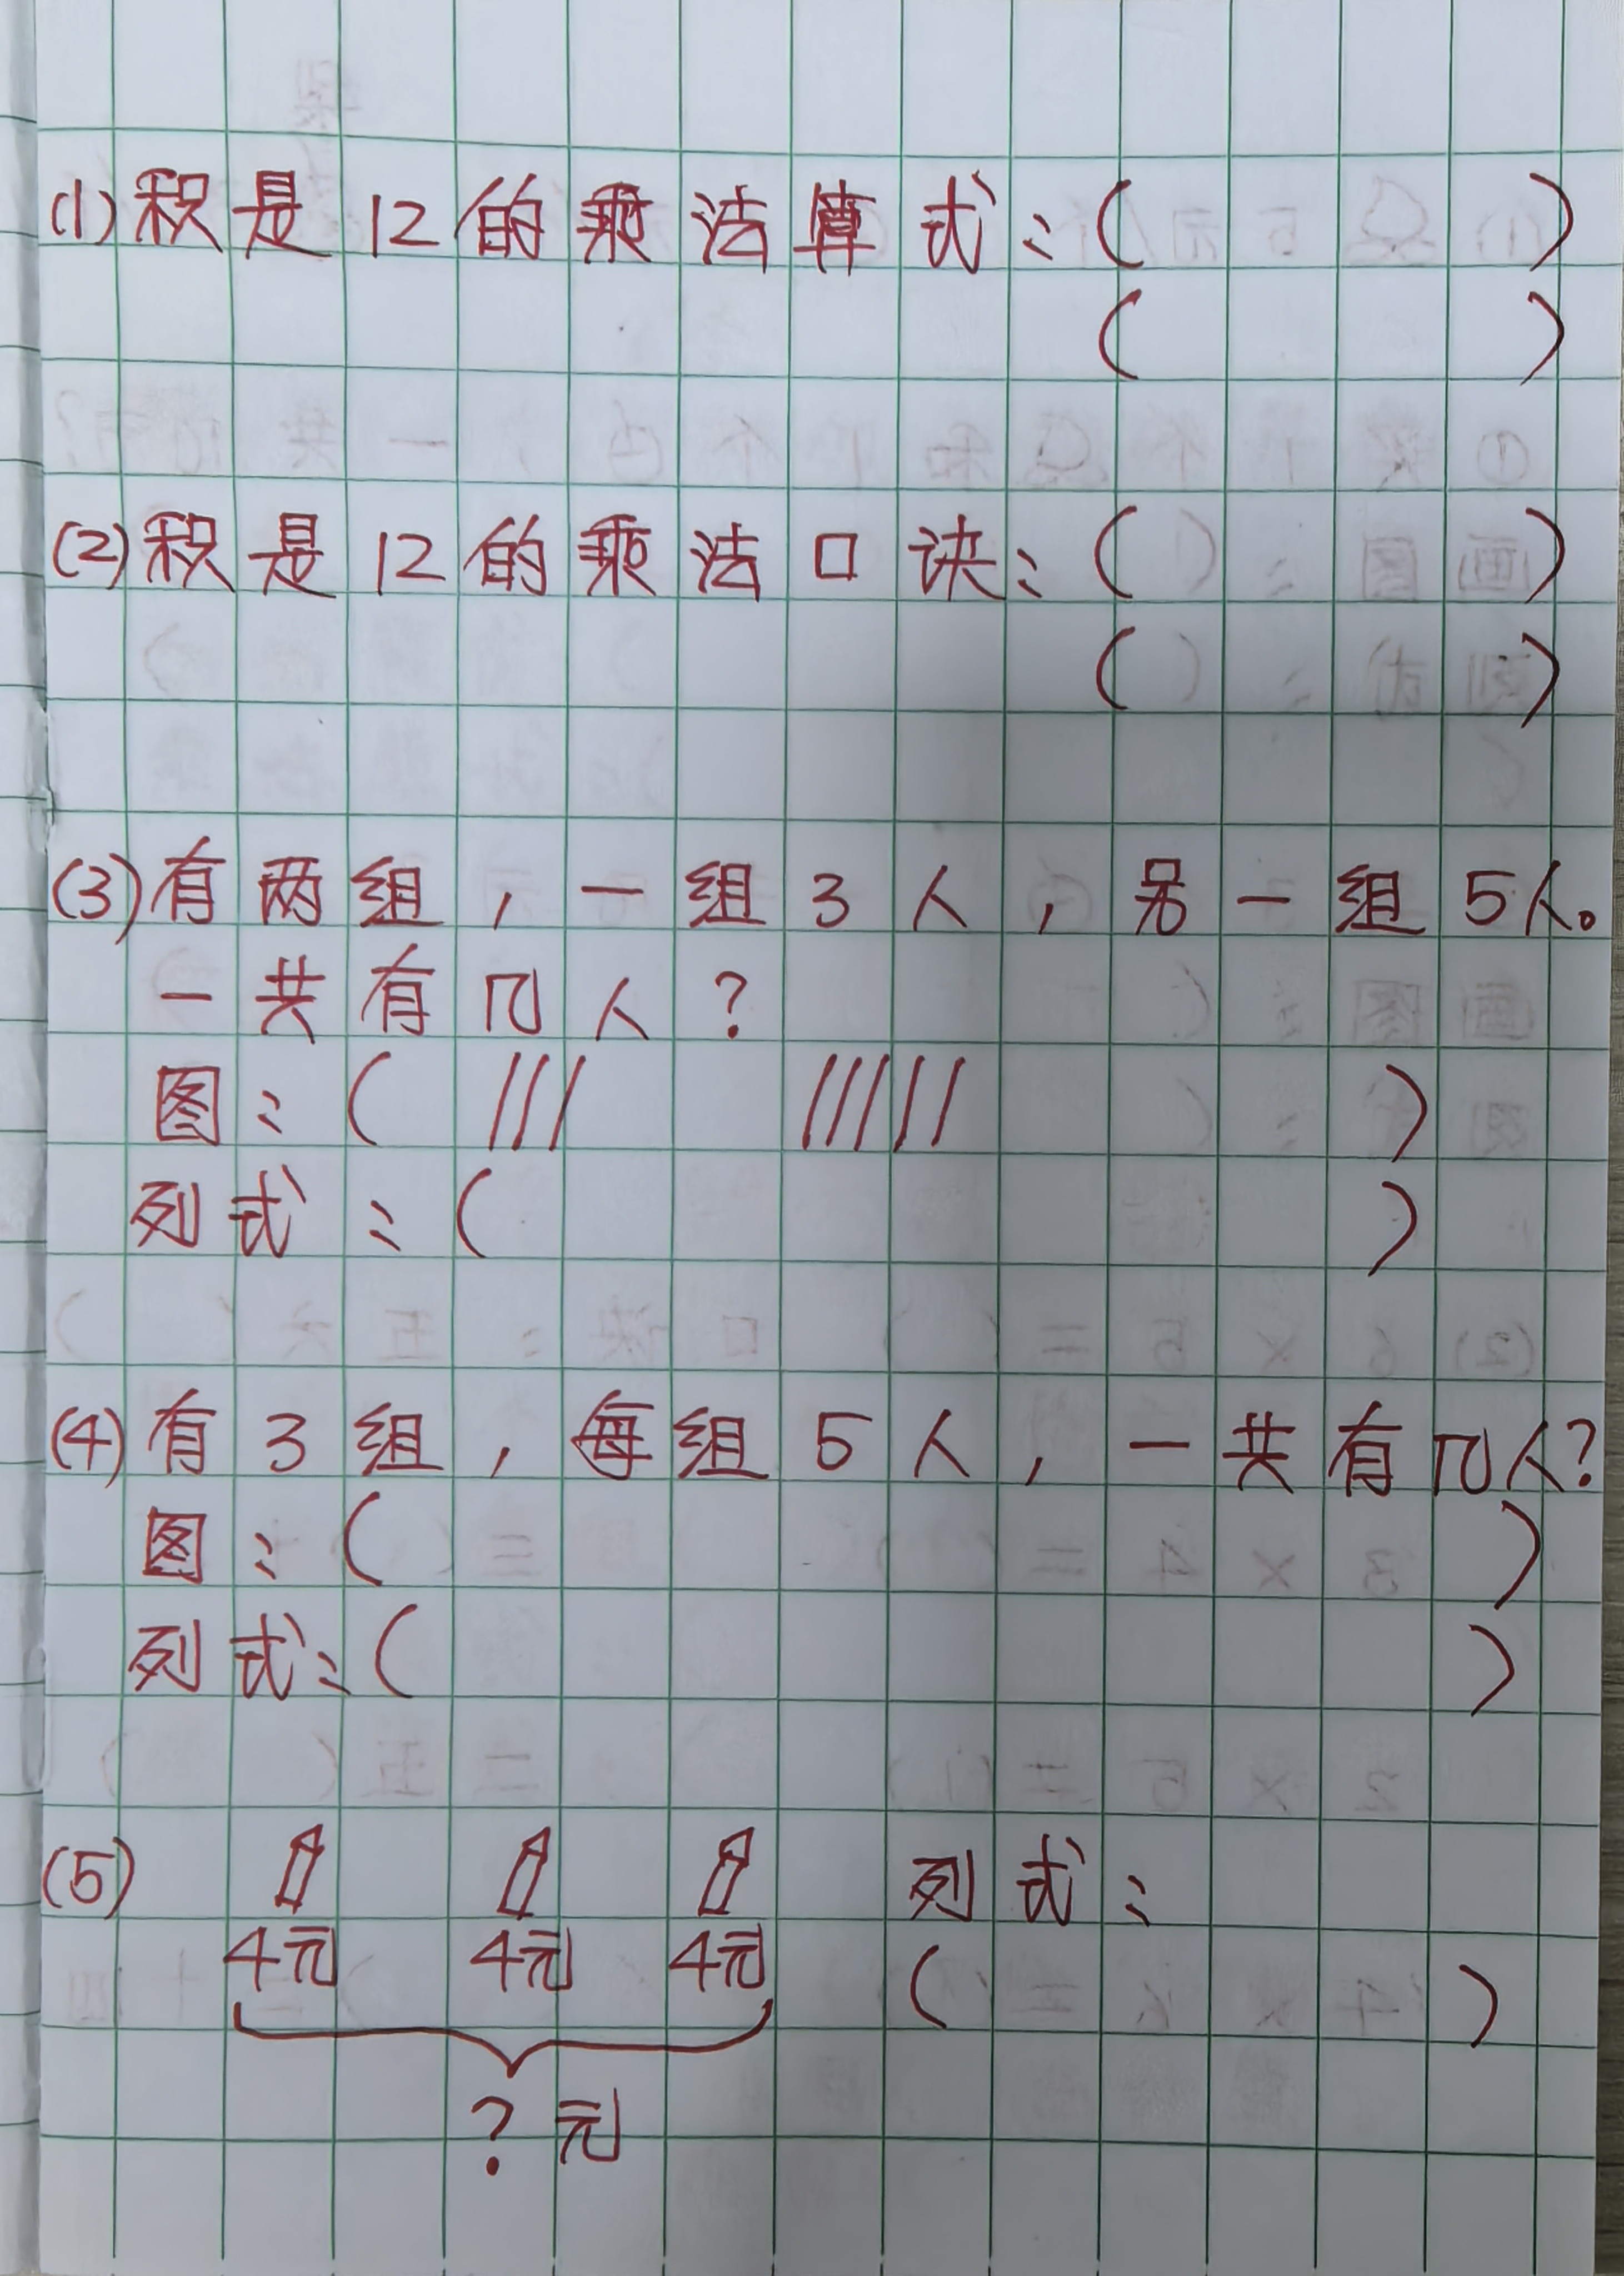 (1)积是12的乘法算式:(        )
(        )
(2)积是12的乘法口诀:(        )
(        )
(3)有两组,一组3人,另一组5人。
一共有几人?
图:( ///    ///// )
列式:(        )
(4)有3组,每组5人,一共有几人?
图:(        )
列式:(        )
(5)
4元 4元 4元
?元
列式:
(        )